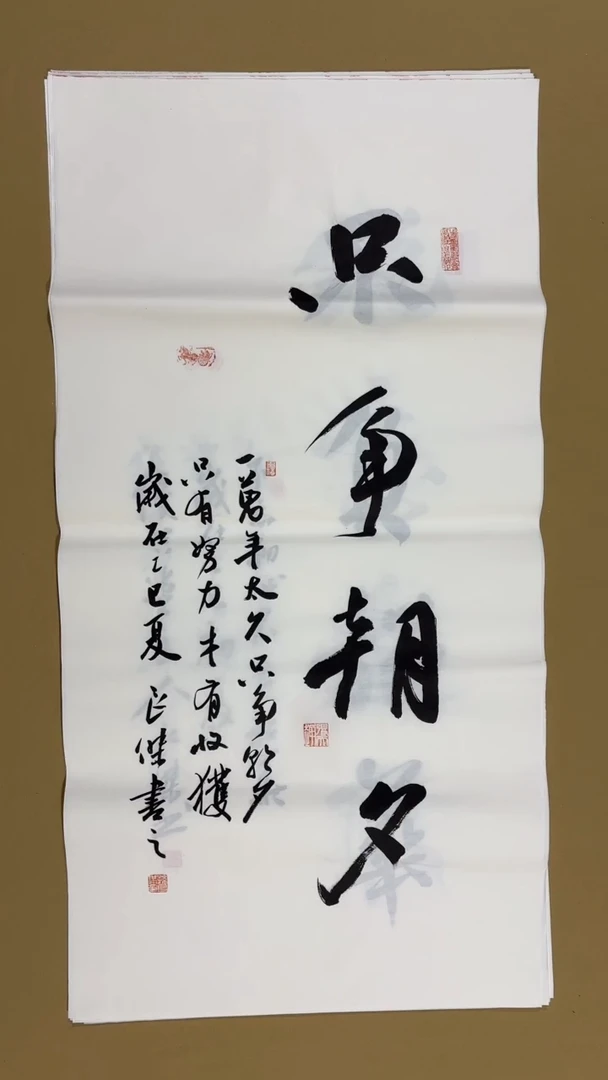 只争朝夕
一萬年太久只争朝夕
只有努力才有收獲
歲在乙巳夏正傑書之